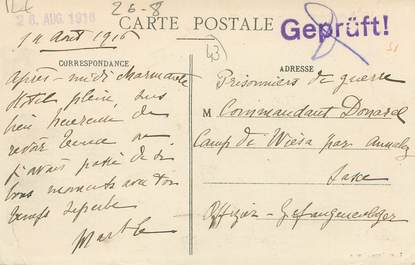 26-8
26. AUG. 1916
CARTE POSTALE
Geprüft!
43
14 Août 1916
CORRESPONDANCE
ADRESSE
Après-midi charmante
Hôtel plein, suis
bien heureuse de
revoir
j'avais passé de
bons moments avec ton
temps superbe
Marthe
Prisonniers de guerre
M Commandant Donard
Camp de Wiesa par Annaberg
Saxe
Offizier-Gefangenenlager